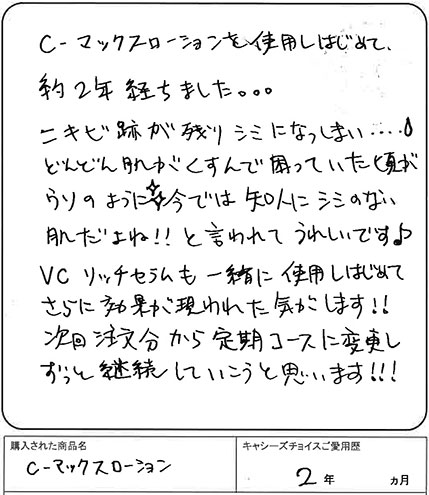 C-マックスローションを使用しはじめて、
約2年経ちました。。。
ニキビ跡が残りシミになってしまい・・・・
どんどん肌がくすんで困っていた頃が
ウソのように今では知人にシミのない
肌だよね!!と言われてうれしいです♪
VCリッチセラムも一緒に使用しはじめて
さらに効果が現われた気がします!!
次回注文分から定期コースに変更し
ずっと継続していこうと思います!!!
購入された商品名
C-マックスローション
キャシーズチョイスご愛用歴
2年 ヵ月